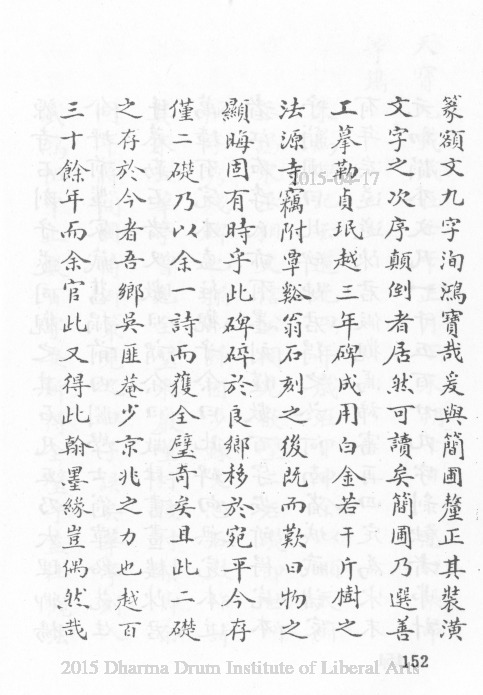 篆額文九字洵鴻寶哉爰與簡圃釐正其裝潢
文字之次序顛倒者居然可讀矣簡圃乃選善
工摹勒貞珉越三年碑成用白金若干斤樹之
法源寺竊附覃谿翁石刻之後既而歎曰物之
顯晦固有時乎此碑碎於良鄉移於宛平今存
僅二礎乃以余一詩而獲全璧奇矣且此二礎
之存於今者吾鄉吳匪菴少京兆之力也越百
三十餘年而余官此又得此翰墨緣豈偶然哉
2015-04-17
2015 Dharma Drum Institute of Liberal Arts
152